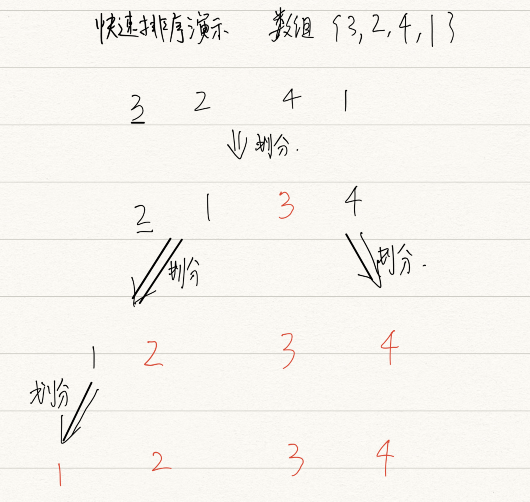 快速排序演示 数组 {3,2,4,1}
3 2 4 1
划分.
2 1 3 4
划分 划分.
1 2 3 4
划分
1 2 3 4